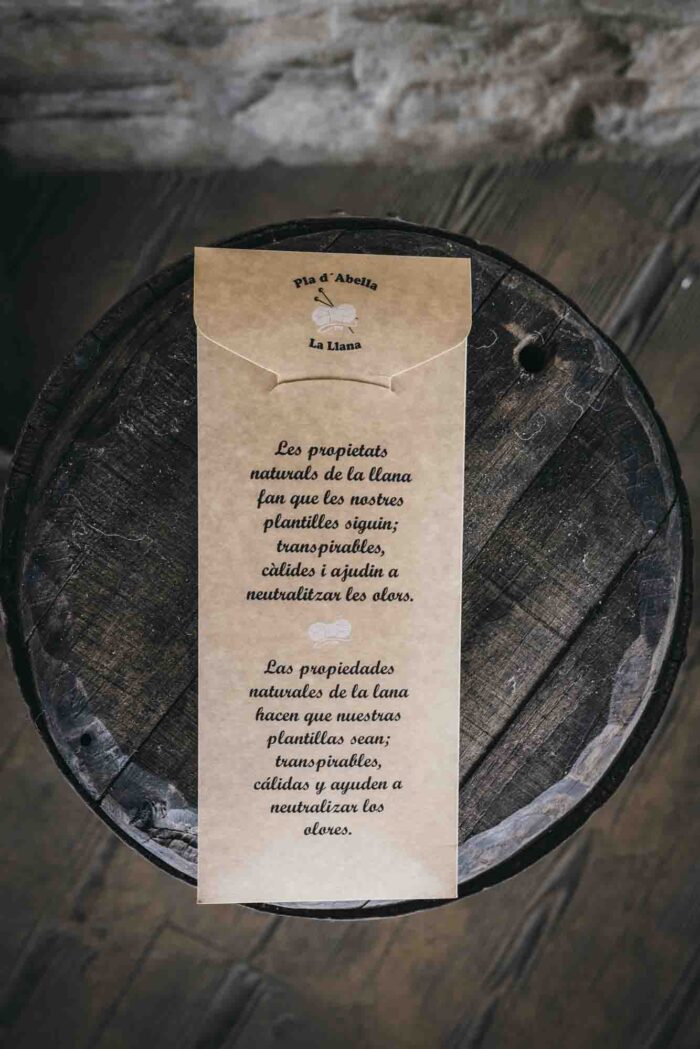 Pla d´Abella
La Llana
Les propietats
naturals de la llana
fan que les nostres
plantilles siguin;
transpirables,
càlides i ajudin a
neutralitzar les olors.
Las propiedades
naturales de la lana
hacen que nuestras
plantillas sean;
transpirables,
cálidas y ayuden a
neutralizar los
olores.